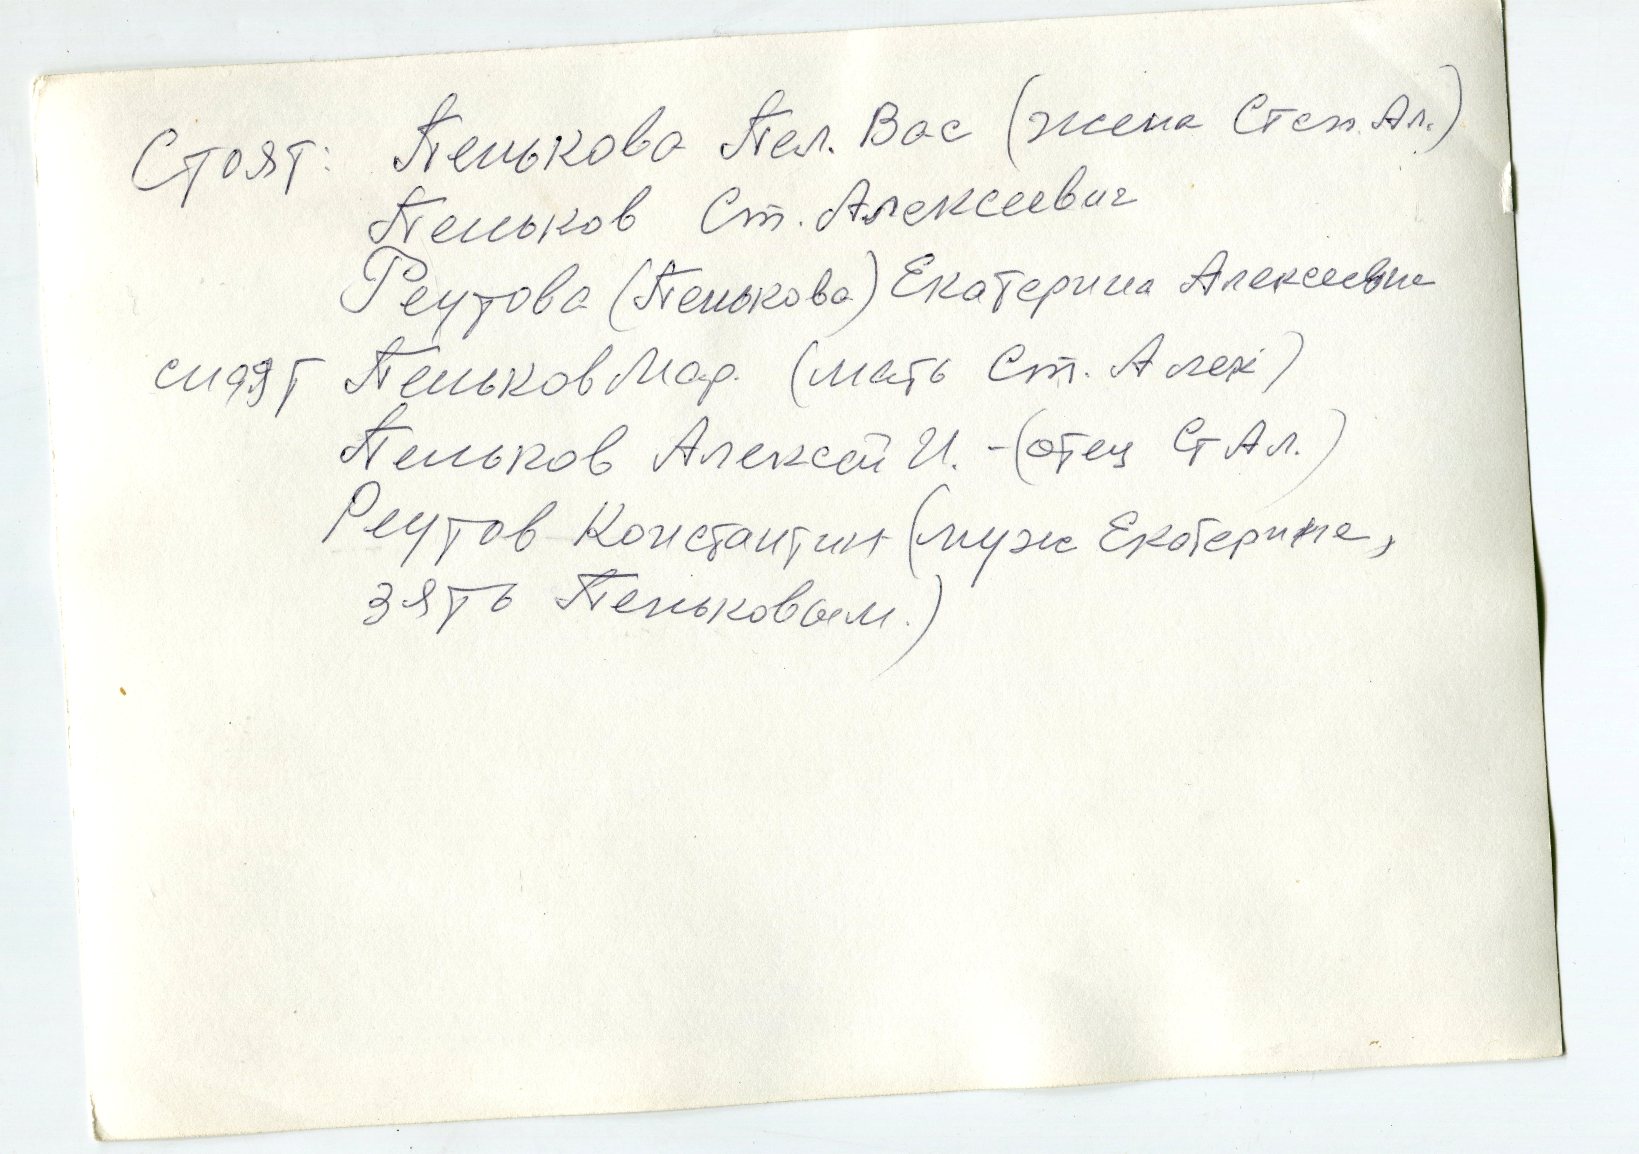 Стоят: Пенькова Пел. Вас (жена Степ. Ал.)
Пеньков Ст. Алексеевич
Реутова (Пенькова) Екатерина Алексеевна
сидят Пеньков Мар. (мать Ст. Алек)
Пеньков Алексей И. - (отец Ст Ал.)
Реутов Константин (муж Екатерине,
зять Пеньковым.)